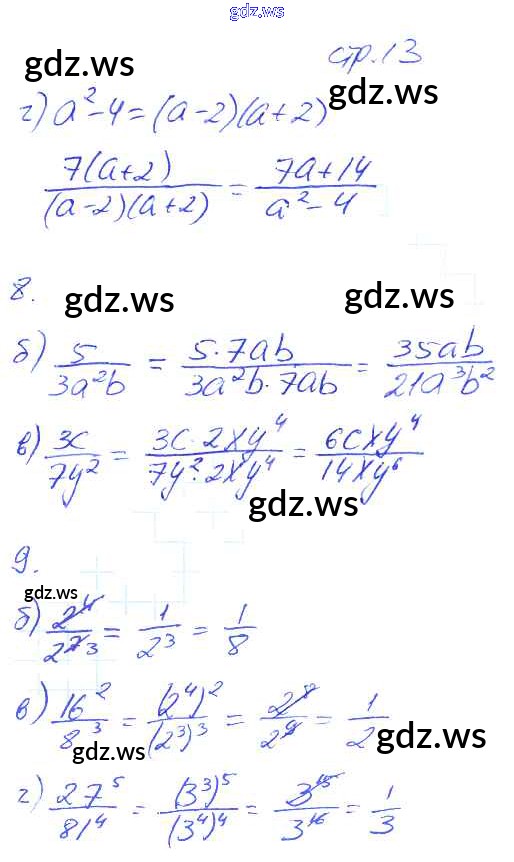 gdz.ws
стр. 13
gdz.ws
gdz.ws
г) a² - 4 = (a - 2)(a + 2)
7(a + 2) / (a - 2)(a + 2) = 7a + 14 / a² - 4
8.
gdz.ws
gdz.ws
б) 5 / 3a²b = 5 · 7ab / 3a²b · 7ab = 35ab / 21a³b²
в) 3c / 7y² = 3c · 2xy⁴ / 7y² · 2xy⁴ = 6cxy⁴ / 14xy⁶
gdz.ws
9.
gdz.ws
б) 2⁴ / 2⁷ ³ = 1 / 2³ = 1 / 8
в) 16² / 8³ = (2⁴)² / (2³)³ = 2⁸ / 2⁹ = 1 / 2
gdz.ws
gdz.ws
г) 27⁵ / 81⁴ = (3³)⁵ / (3⁴)⁴ = 3¹⁵ / 3¹⁶ = 1 / 3